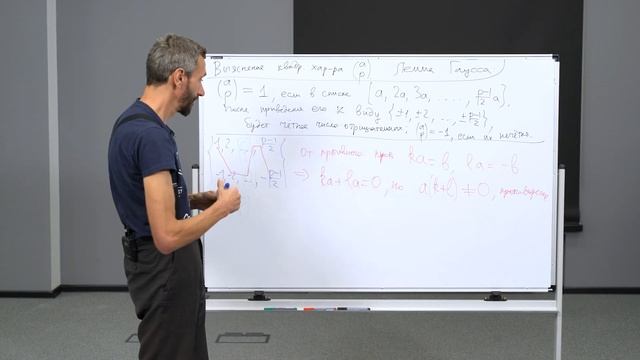 Выяснение квадр. хар-ра (a/p) Лемма Гаусса
(a/p) = 1, если в списке [a, 2a, 3a, ...., p-1/2 a],
после приведения его к виду {±1, ±2, .., ±p-1/2}
будет четное число отрицательных. (a/p) = -1, если их нечётн.
{1, 2, ... p-1/2
-1, -2, ..., -p-1/2}
от противного пусть ka = b la = -b
⇒ ka + la = 0, но a(k+l) ≠ 0, противоречие